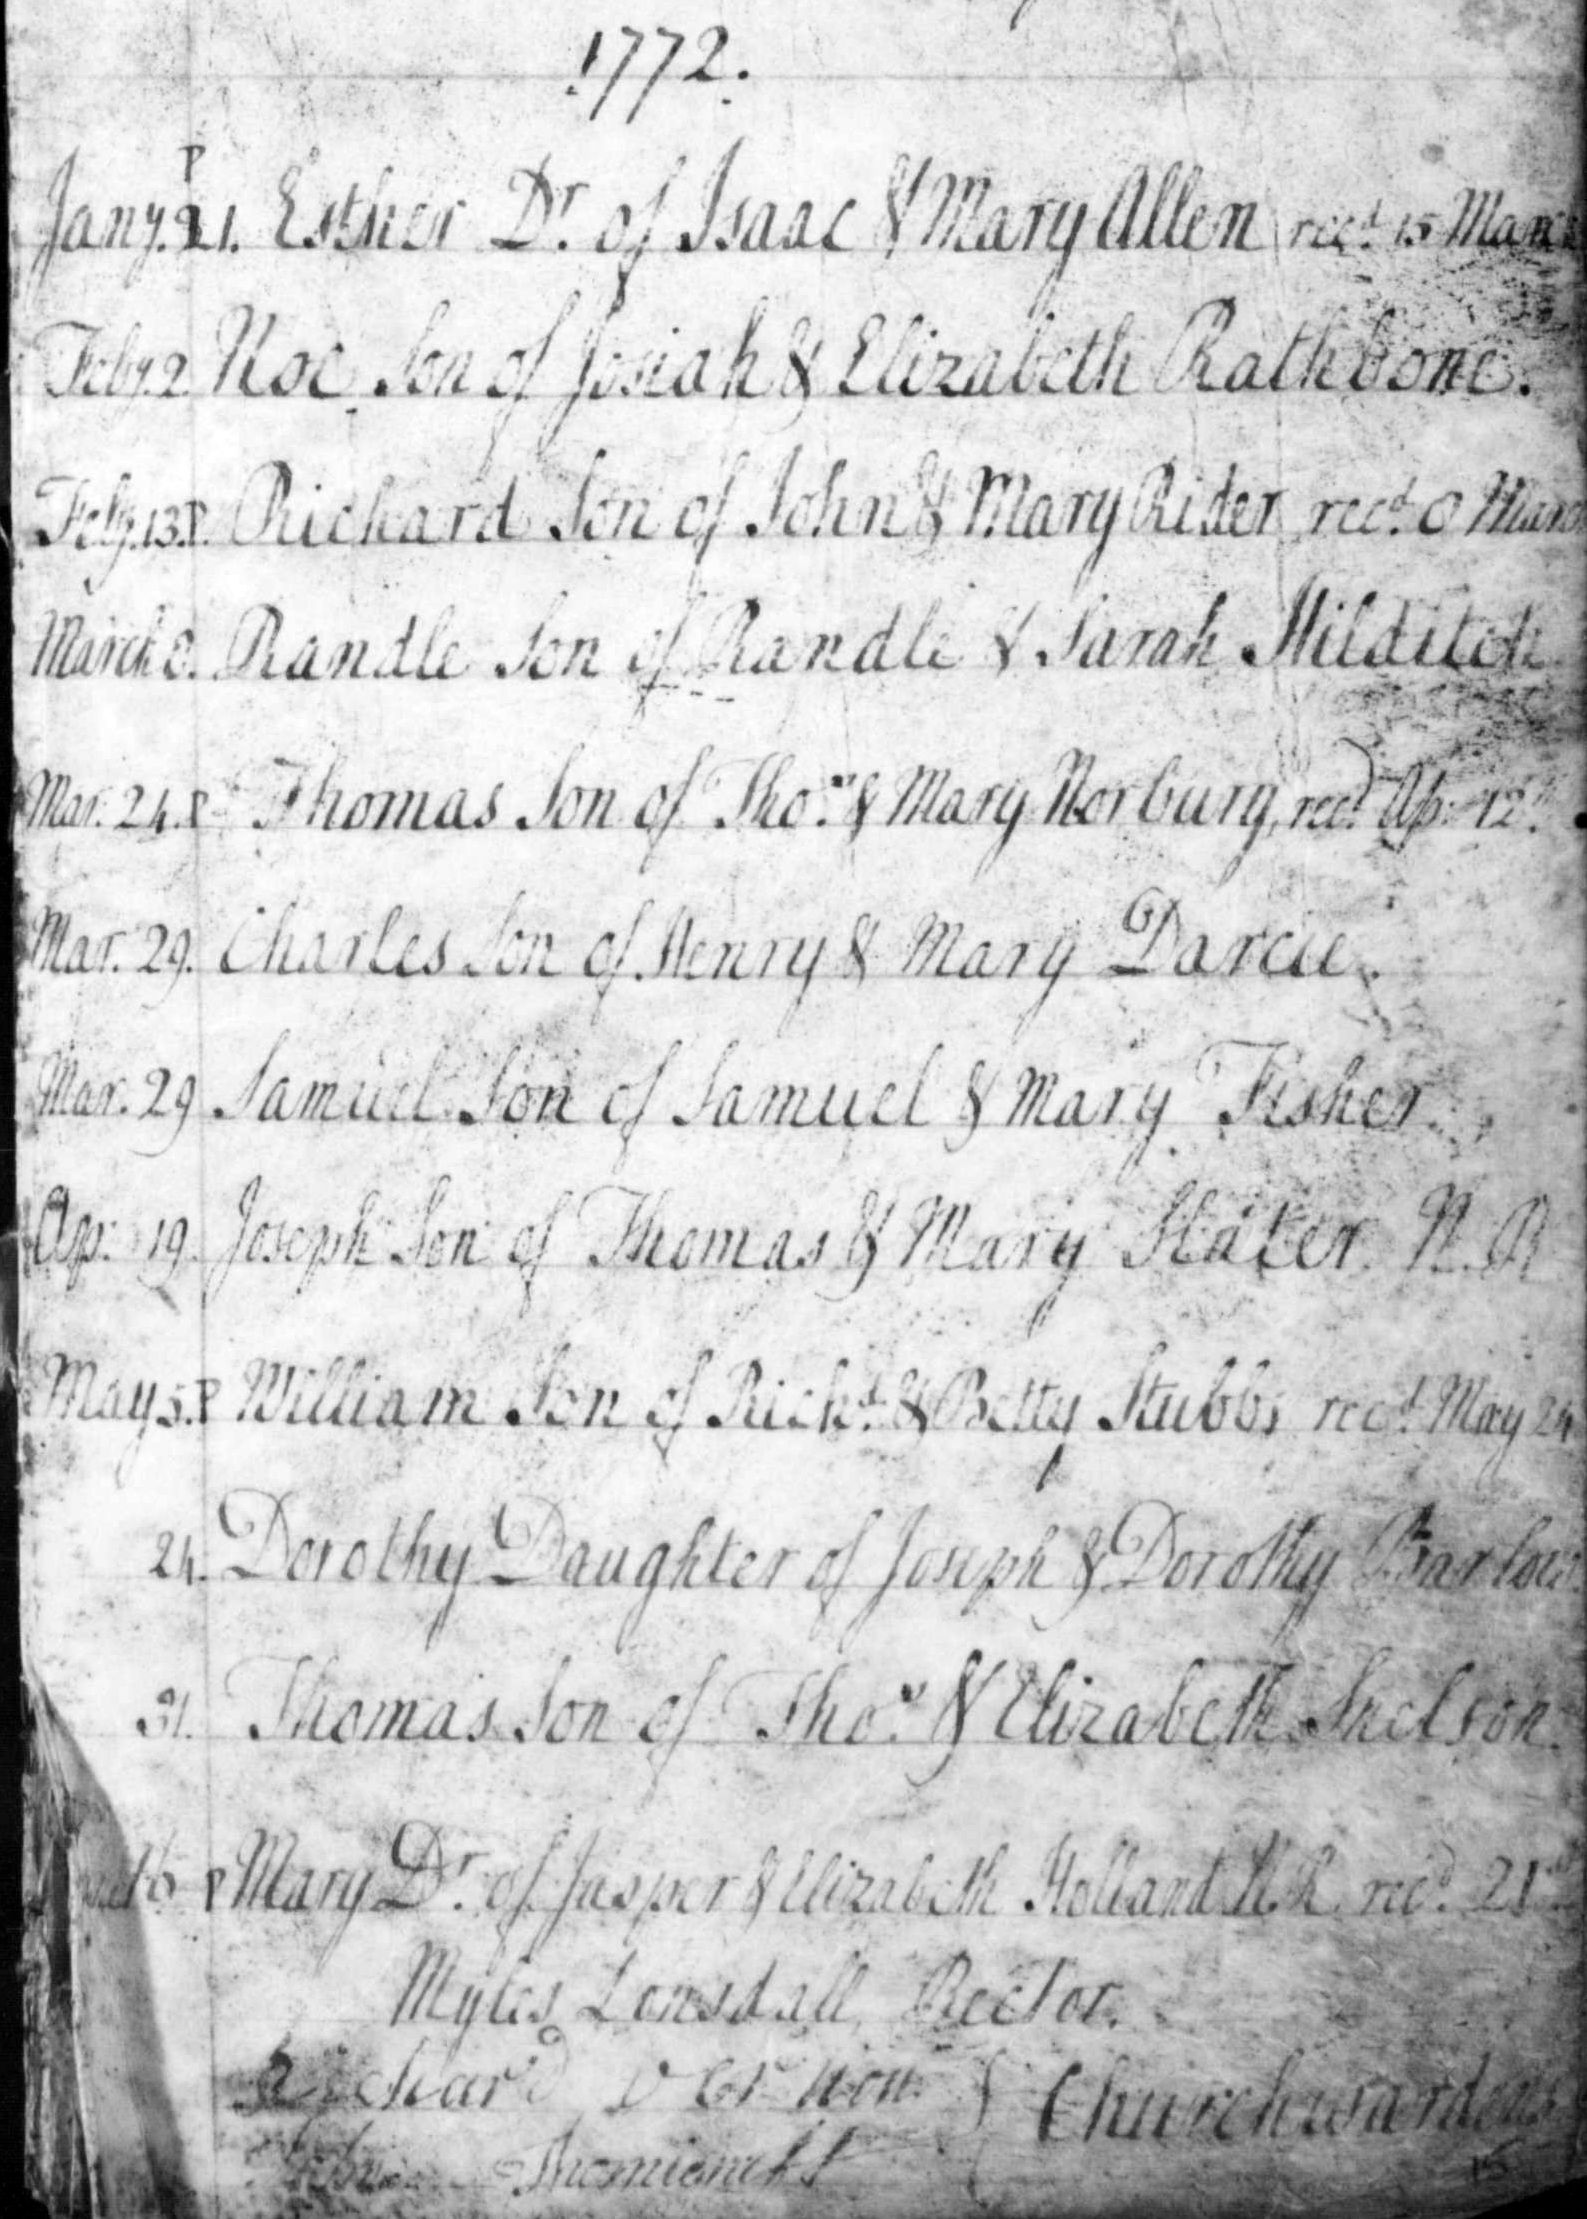 1772.
P
Jany. 21. Esther Dr. of Isaac & Mary Allen recd. 15 March
Feby. 2 Noe Son of Josiah & Elizabeth Rathbone.
Feby. 13. P. Richard Son of John & Mary Rider recd. 8 March
March 8. Randle Son of Randle & Sarah Hilditch
Mar. 24. P Thomas Son of Thos. & Mary Norbury, recd. Ap. 12th.
Mar. 29. Charles Son of Henry & Mary Darcie.
Mar. 29 Samuel Son of Samuel & Mary Fisher
Ap. 19. Joseph Son of Thomas & Mary Slater. N. R
May 5. P William Son of Richd. & Betty Stubbs recd. May 24
24. Dorothy Daughter of Joseph & Dorothy Barlow
31. Thomas Son of Thos. & Elizabeth Snelson.
16 P Mary Dr. of Jasper & Elizabeth Holland N. R. recd. 21st
Myles Lonsdall, Rector.
Richard Vernon } Churchwardens
15